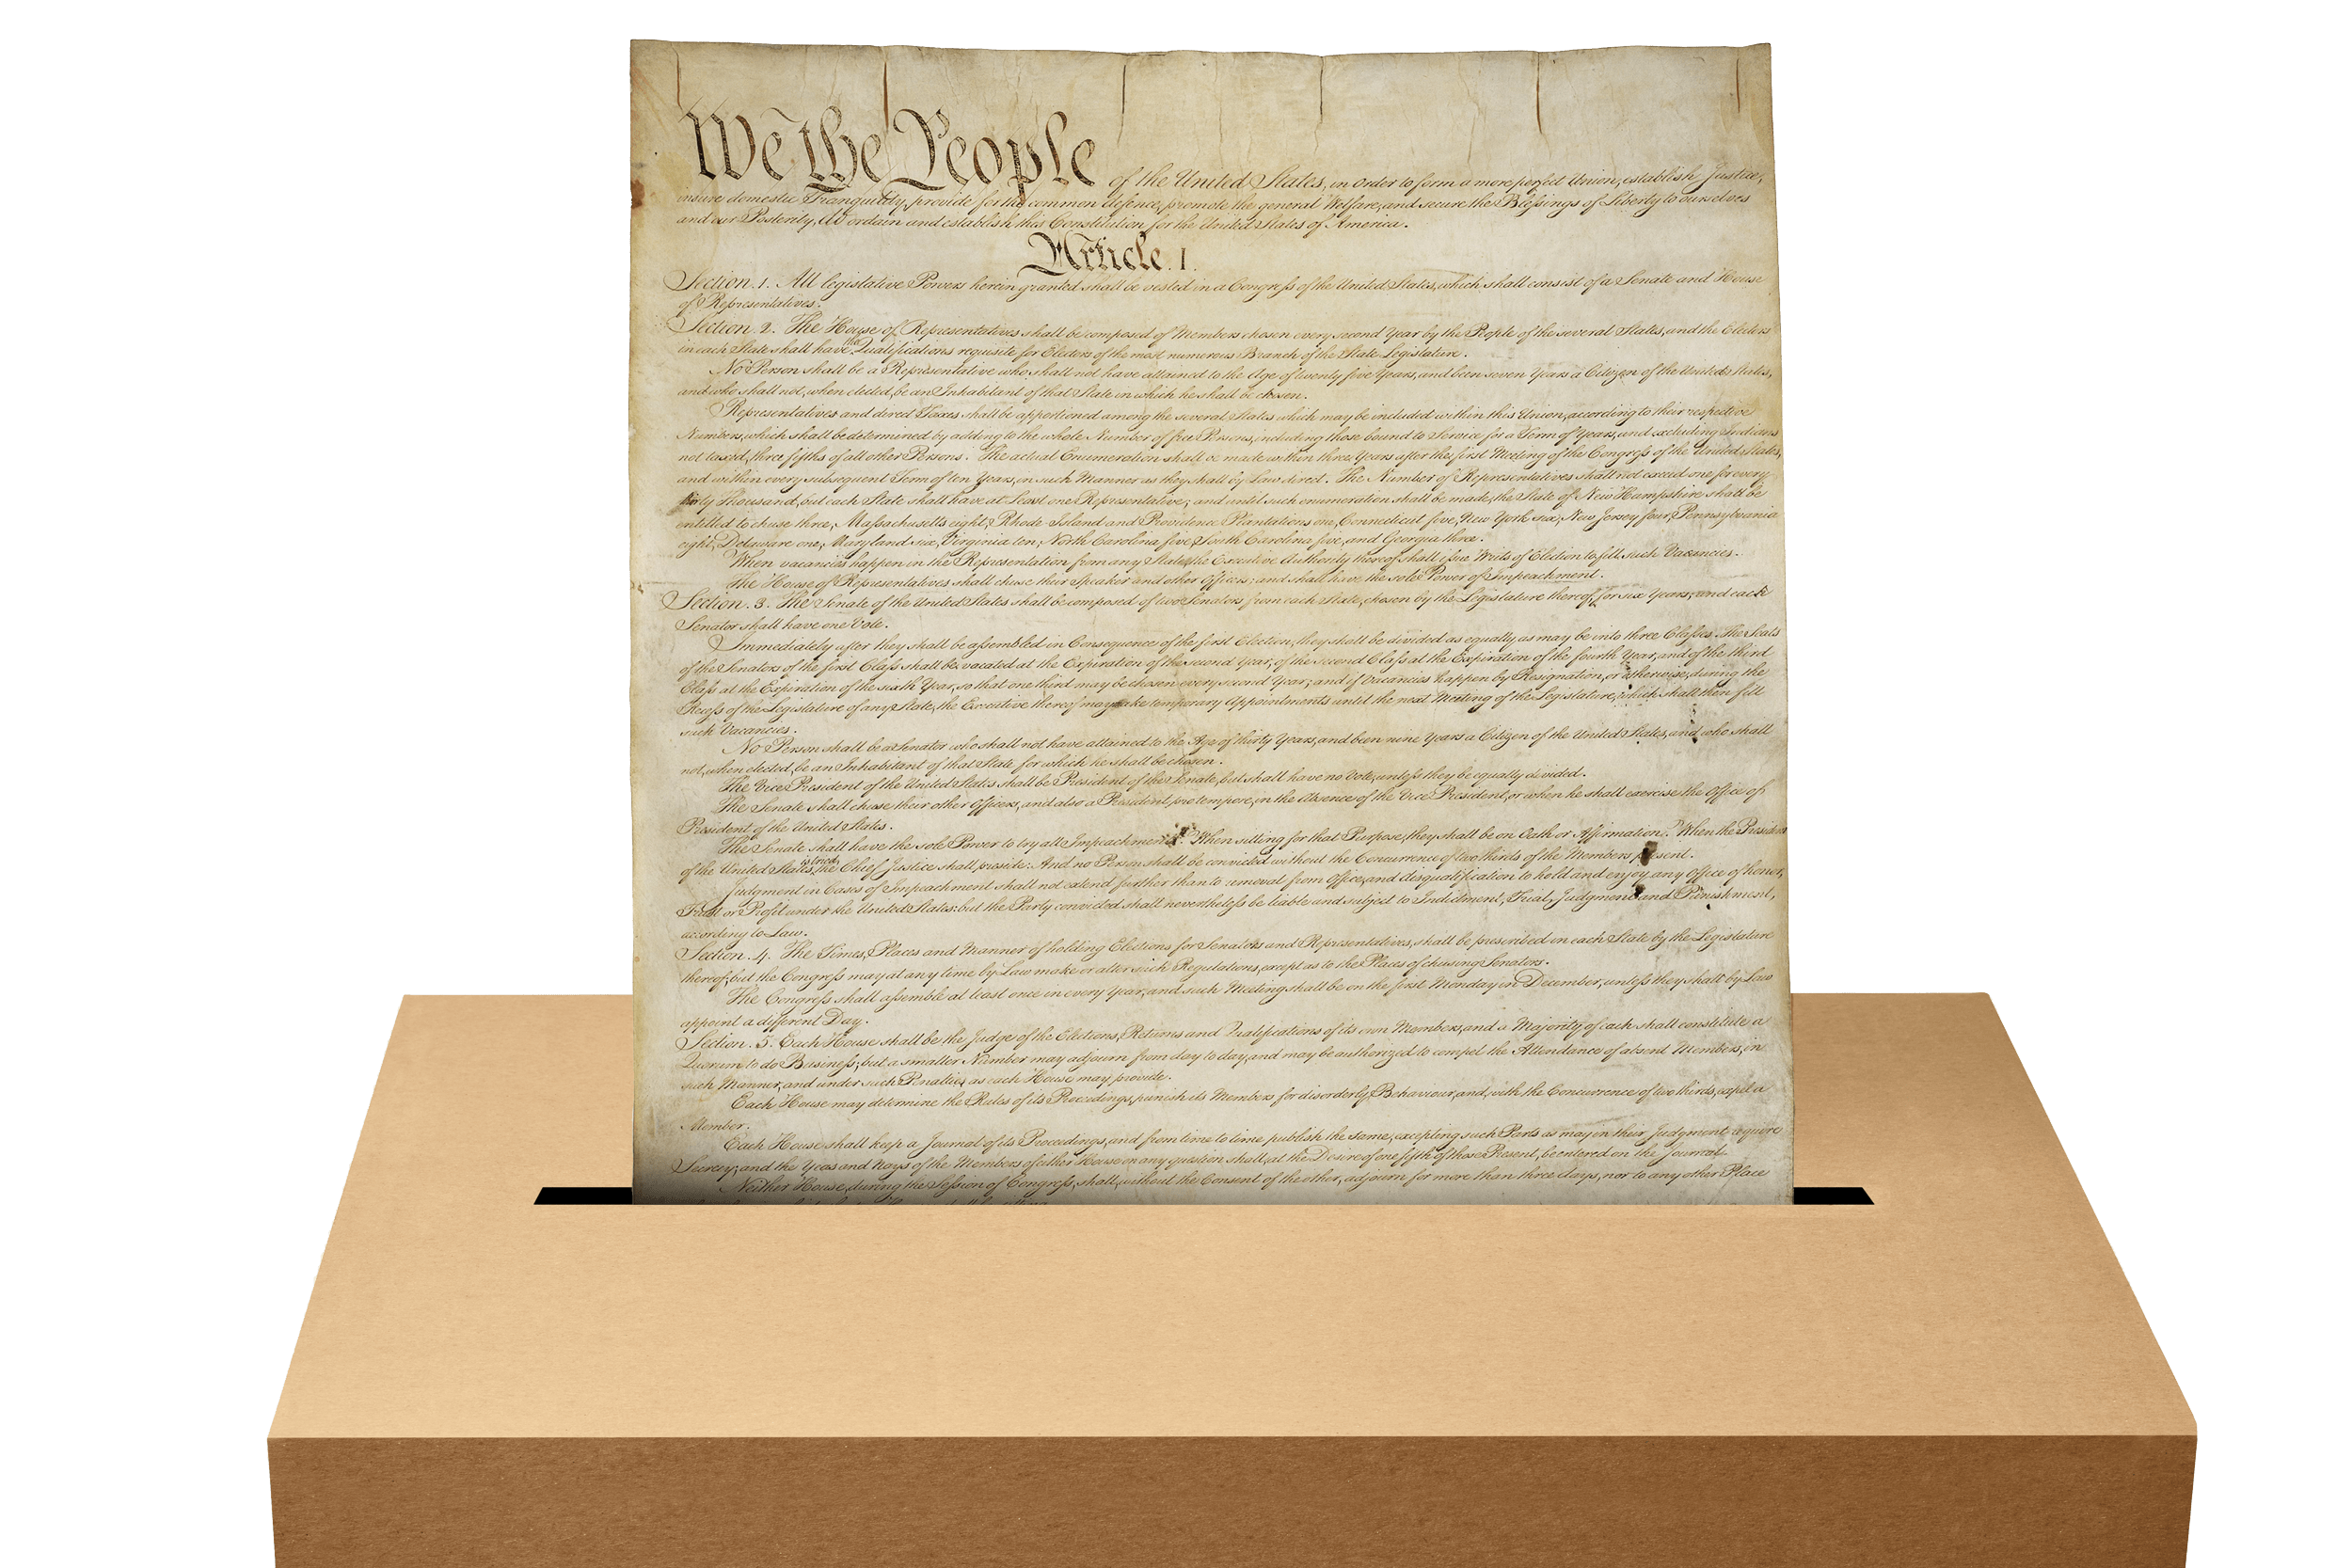 We the People of the United States, in Order to form a more perfect Union, establish Justice,
insure domestic Tranquility, provide for the common defence, promote the general Welfare, and secure the Blessings of Liberty to ourselves
and our Posterity, do ordain and establish this Constitution for the United States of America.
Article. I.
Section. 1. All legislative Powers herein granted shall be vested in a Congress of the United States, which shall consist of a Senate and House
of Representatives.
Section. 2. The House of Representatives shall be composed of Members chosen every second Year by the People of the several States, and the Electors
in each State shall have the Qualifications requisite for Electors of the most numerous Branch of the State Legislature.
No Person shall be a Representative who shall not have attained to the Age of twenty five Years, and been seven Years a Citizen of the United States,
and who shall not, when elected, be an Inhabitant of that State in which he shall be chosen.
Representatives and direct Taxes shall be apportioned among the several States which may be included within this Union, according to their respective
Numbers, which shall be determined by adding to the whole Number of free Persons, including those bound to Service for a Term of Years, and excluding Indians
not taxed, three fifths of all other Persons. The actual Enumeration shall be made within three Years after the first Meeting of the Congress of the United States,
and within every subsequent Term of ten Years, in such Manner as they shall by Law direct. The Number of Representatives shall not exceed one for every
thirty Thousand, but each State shall have at Least one Representative; and until such enumeration shall be made, the State of New Hampshire shall be
entitled to chuse three, Massachusetts eight, Rhode-Island and Providence Plantations one, Connecticut five, New-York six, New Jersey four, Pennsylvania
eight, Delaware one, Maryland six, Virginia ten, North Carolina five, South Carolina five, and Georgia three.
When vacancies happen in the Representation from any State, the Executive Authority thereof shall issue Writs of Election to fill such Vacancies.
The House of Representatives shall chuse their Speaker and other Officers; and shall have the sole Power of Impeachment.
Section. 3. The Senate of the United States shall be composed of two Senators from each State, chosen by the Legislature thereof, for six Years; and each
Senator shall have one Vote.
Immediately after they shall be assembled in Consequence of the first Election, they shall be divided as equally as may be into three Classes. The Seats
of the Senators of the first Class shall be vacated at the Expiration of the second Year, of the second Class at the Expiration of the fourth Year, and of the third
Class at the Expiration of the sixth Year, so that one third may be chosen every second Year; and if Vacancies happen by Resignation, or otherwise, during the
Recess of the Legislature of any State, the Executive thereof may make temporary Appointments until the next Meeting of the Legislature, which shall then fill
such Vacancies.
No Person shall be a Senator who shall not have attained to the Age of thirty Years, and been nine Years a Citizen of the United States, and who shall
not, when elected, be an Inhabitant of that State for which he shall be chosen.
The Vice President of the United States shall be President of the Senate, but shall have no Vote, unless they be equally divided.
The Senate shall chuse their other Officers, and also a President pro tempore, in the Absence of the Vice President, or when he shall exercise the Office of
President of the United States.
The Senate shall have the sole Power to try all Impeachments. When sitting for that Purpose, they shall be on Oath or Affirmation. When the President
of the United States is tried, the Chief Justice shall preside: And no Person shall be convicted without the Concurrence of two thirds of the Members present.
Judgment in Cases of Impeachment shall not extend further than to removal from Office, and disqualification to hold and enjoy any Office of honor,
Trust or Profit under the United States: but the Party convicted shall nevertheless be liable and subject to Indictment, Trial, Judgment and Punishment,
according to Law.
Section. 4. The Times, Places and Manner of holding Elections for Senators and Representatives, shall be prescribed in each State by the Legislature
thereof; but the Congress may at any time by Law make or alter such Regulations, except as to the Places of chusing Senators.
The Congress shall assemble at least once in every Year, and such Meeting shall be on the first Monday in December, unless they shall by Law
appoint a different Day.
Section. 5. Each House shall be the Judge of the Elections, Returns and Qualifications of its own Members, and a Majority of each shall constitute a
Quorum to do Business; but a smaller Number may adjourn from day to day, and may be authorized to compel the Attendance of absent Members, in
such Manner, and under such Penalties as each House may provide.
Each House may determine the Rules of its Proceedings, punish its Members for disorderly Behaviour, and, with the Concurrence of two thirds, expel a
Member.
Each House shall keep a Journal of its Proceedings, and from time to time publish the same, excepting such Parts as may in their Judgment require
Secrecy; and the Yeas and Nays of the Members of either House on any question shall, at the Desire of one fifth of those Present, be entered on the Journal.
Neither House, during the Session of Congress, shall, without the Consent of the other, adjourn for more than three days, nor to any other Place